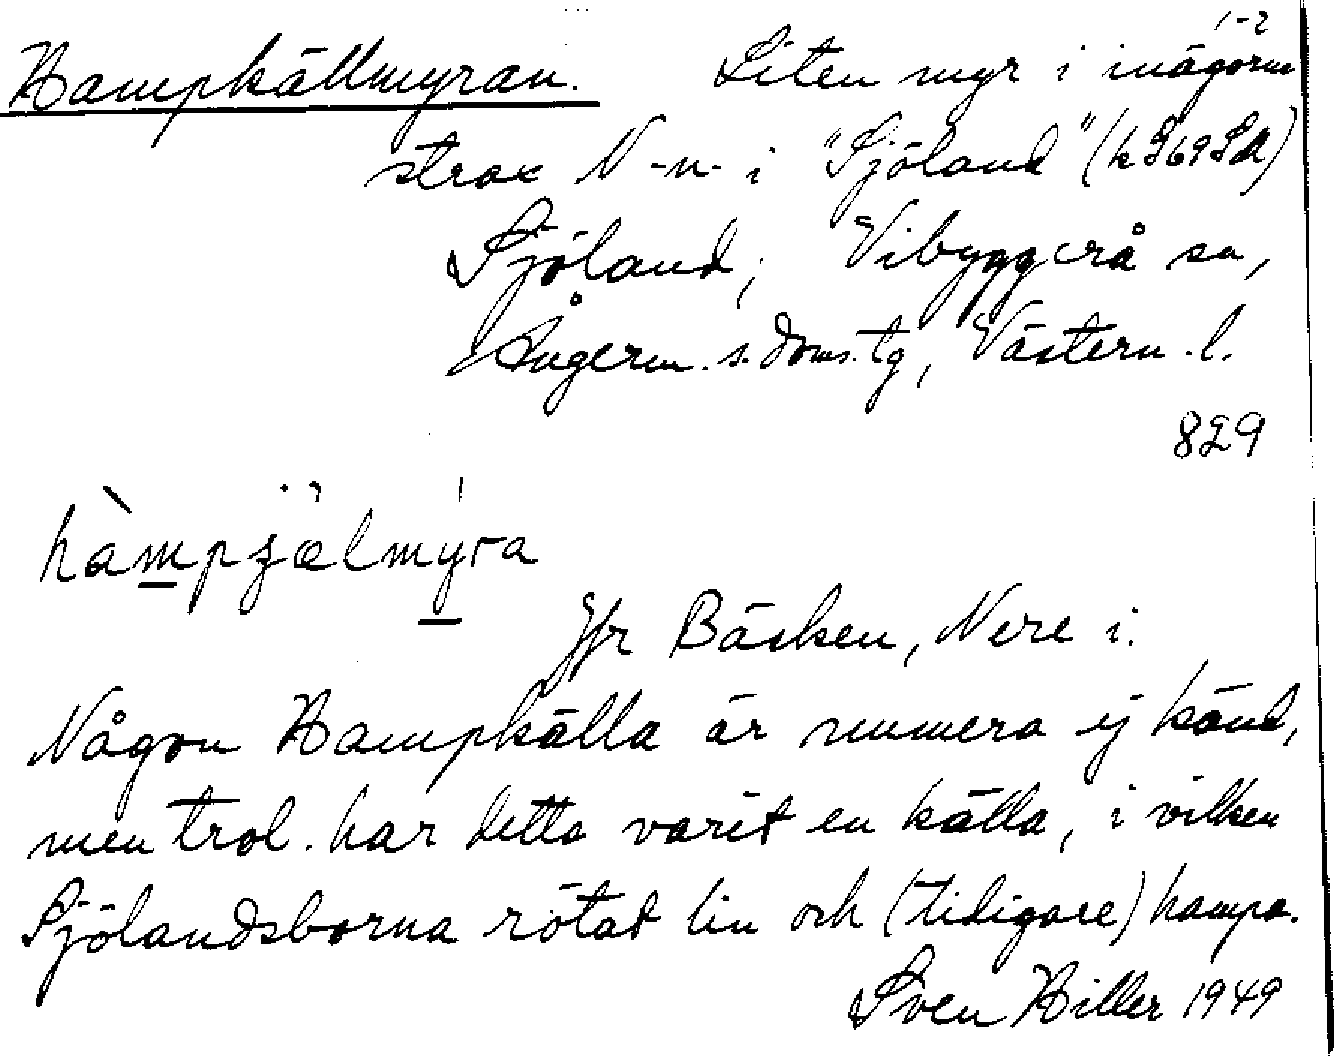 1-2
Hampkällmyran. Liten myr i inägorna
strax N-n- i "Sjöland" (k S69SA)
Sjöland; Vibyggerå sn,
Ångerm. s. doms. tg, Västern. l.
829
hàmpjælmýra
Jfr Bäcken, Nere i.
Någon Hampkälla är numera ej känd,
men trol. har detta varit en källa, i vilken
Sjölandsborna rötat lin och (tidigare) hampa.
Sven Hiller 1949